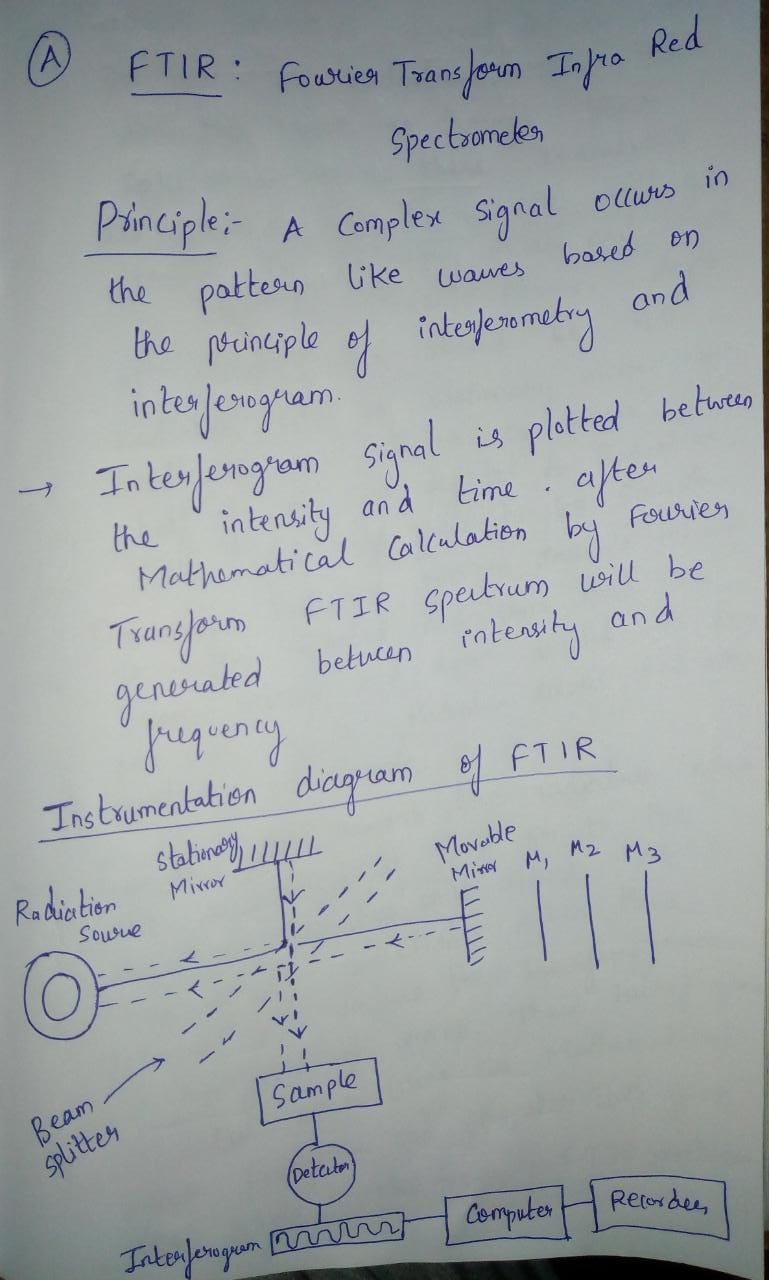 A
FTIR : Fourier Transform Infra Red
Spectrometer
Principle:- A Complex Signal occurs in
the pattern like waves based on
the principle of interferometry and
interferogram.
→ Interferogram Signal is plotted between
the intensity and time. after
Mathematical Calculation by Fourier
Transform FTIR spectrum will be
generated between intensity and
frequency
Instrumentation diagram of FTIR
Stationary
Mirror
Movable
Mirror
M1 M2 M3
Radiation
Source
Beam
splitter
Sample
Detector
Interferogram
Computer
Recorder